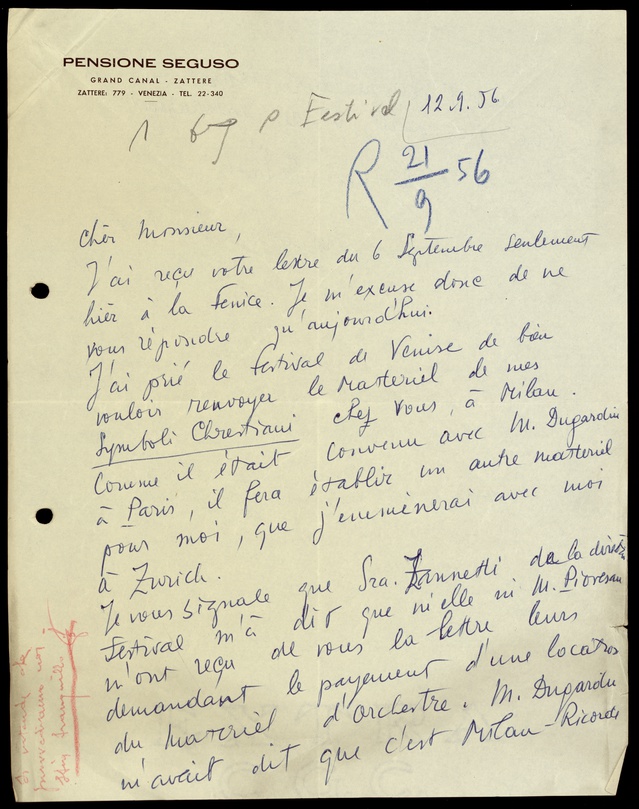 PENSIONE SEGUSO
GRAND CANAL - ZATTERE
ZATTERE: 779 - VENEZIA - TEL. 22-340
Festival 12.9.56
R 21/9 56
Cher Monsieur,
J'ai reçu votre lettre du 6 Septembre seulement
hier à la Fenice. Je m'excuse donc de ne
vous répondre qu'aujourd'hui.
J'ai prié le Festival de Venise de bien
vouloir renvoyer le Materiel de mes
Symboli Chrestiani chez vous, à Milan.
Comme il était convenu avec M. Dugardin
à Paris, il fera établir un autre materiel
pour moi, que j'emmènerai avec moi
à Zurich.
Je vous signale que Sra. Zannetti de la
Festival m'à dit que ni elle ni M. Piovesan
n'ont reçu de vous la lettre leurs
demandant le payement d'une location
du Matériel d'Orchestre. M. Dugardin
m'avait dit que c'est Milan-Ricordi